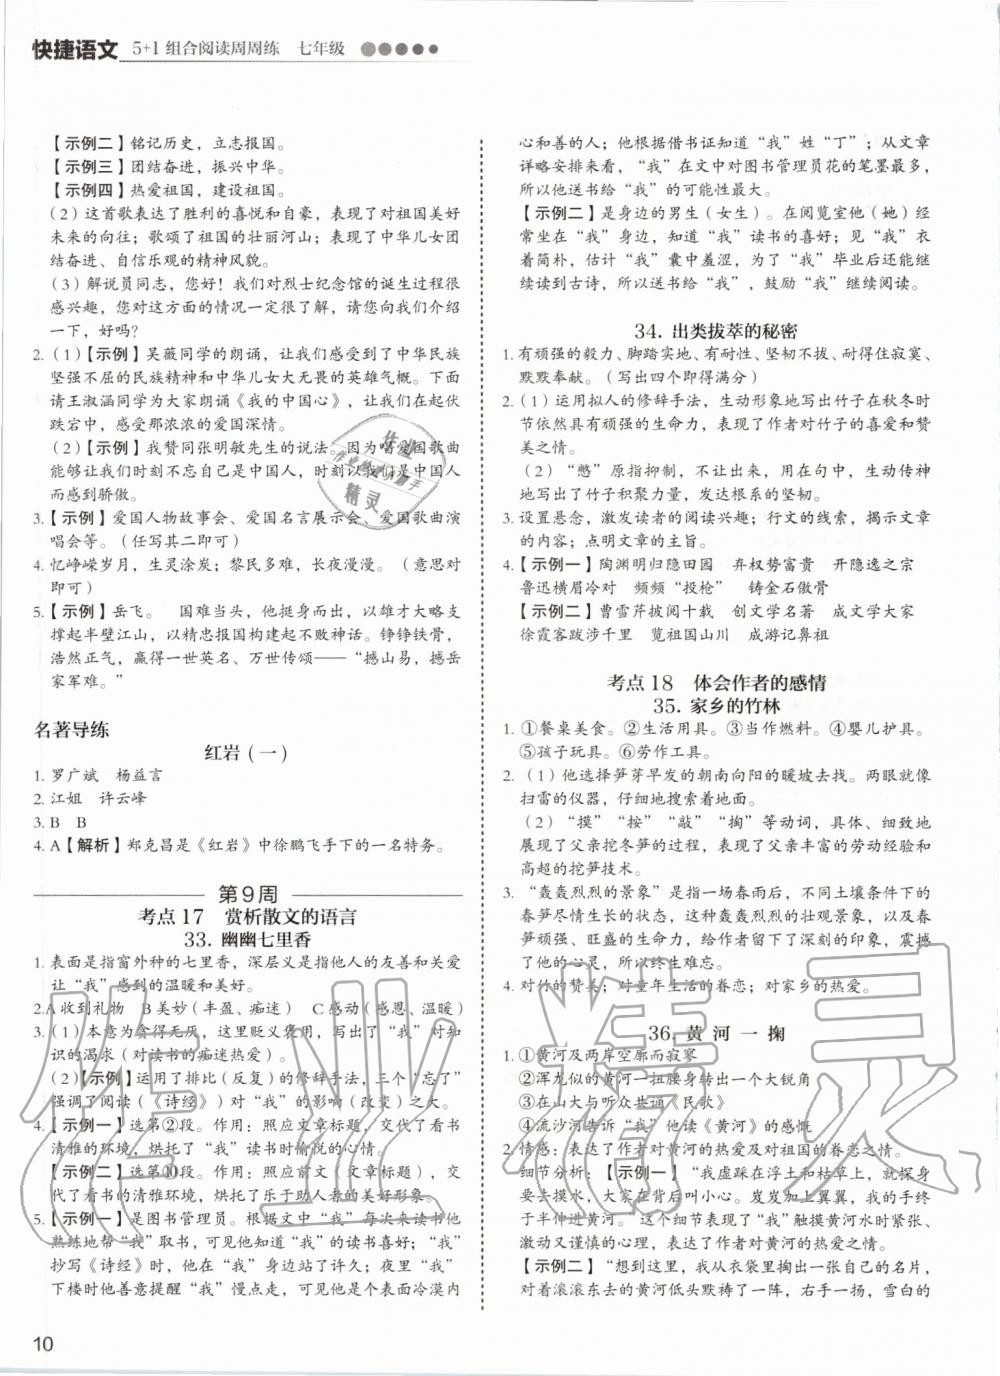 快捷语文 5+1组合阅读周周练 七年级
【示例二】铭记历史，立志报国。
【示例三】团结奋进，振兴中华。
【示例四】热爱祖国，建设祖国。
（2）这首歌表达了胜利的喜悦和自豪，表现了对祖国美好
未来的向往；歌颂了祖国的壮丽河山；表现了中华儿女团
结奋进、自信乐观的精神风貌。
（3）解说员同志，您好！我们对烈士纪念馆的诞生过程很
感兴趣，您对这方面的情况一定很了解，请您向我们介绍
一下，好吗？
2.（1）【示例】吴薇同学的朗诵，让我们感受到了中华民族
坚强不屈的民族精神和中华儿女大无畏的英雄气概。下面
请王淑涵同学为大家朗诵《我的中国心》，让我们在起伏
跌宕中，感受那浓浓的爱国深情。
（2）【示例】我赞同张明敏先生的说法。因为唱爱国歌曲
能够让我们时刻不忘自己是中国人，时刻以我们是中国人
而感到骄傲。
3.【示例】爱国人物故事会、爱国名言展示会、爱国歌曲演
唱会等。（任写其二即可）
4. 忆峥嵘岁月，生灵涂炭；黎民多难，长夜漫漫。（意思对
即可）
5.【示例】岳飞。 国难当头，他挺身而出，以雄才大略支
撑起半壁江山，以精忠报国构建起不败神话。铮铮铁骨，
浩然正气，赢得一世英名、万世传颂——“撼山易，撼岳
家军难。”
名著导练
红岩（一）
1. 罗广斌 杨益言
2. 江姐 许云峰
3. B B
4. A【解析】郑克昌是《红岩》中徐鹏飞手下的一名特务。
第9周
考点17 赏析散文的语言
33. 幽幽七里香
1. 表面是指窗外种的七里香，深层义是指他人的友善和关爱
让“我”感到的温暖和美好。
2.A 收到礼物 B 美妙(丰盈、痴迷) C 感动(感恩、温暖)
3.（1）本意为贪得无厌，这里贬义褒用，写出了“我”对知
识的渴求（对读书的痴迷热爱）。
（2）【示例】运用了排比（反复）的修辞手法，三个“忘了”
强调了阅读（《诗经》）对“我”的影响（改变）之大。
4.【示例一】选第②段。作用：照应文章标题，交代了看书
清雅的环境，烘托了“我”读书时愉悦的心情。
【示例二】选第⑩段。作用：照应前文（文章标题），交
代了看书的清雅环境，烘托了乐于助人者的美好形象。
5.【示例一】是图书管理员。根据文中“我”每次来读书他
熟练地帮“我”取书，可见他知道“我”的读书喜好；“我”
抄写《诗经》时，他在“我”身边站了许久；夜里“我”
下楼时他善意提醒“我”慢点走，可见他是个表面冷漠内
心和善的人；他根据借书证知道“我”姓“丁”；从文章
详略安排来看，“我”在文中对图书管理员花的笔墨最多，
所以他送书给“我”的可能性最大。
【示例二】是身边的男生（女生）。在阅览室他（她）经
常坐在“我”身边，知道“我”读书的喜好；见“我”衣
着简朴，估计“我”囊中羞涩，为了“我”毕业后还能继
续读到古诗，所以送书给“我”，鼓励“我”继续阅读。
34. 出类拔萃的秘密
1. 有顽强的毅力、脚踏实地、有耐性、坚韧不拔、耐得住寂寞、
默默奉献。（写出四个即得满分）
2.（1）运用拟人的修辞手法，生动形象地写出竹子在秋冬时
节依然具有顽强的生命力，表现了作者对竹子的喜爱和赞
美之情。
（2）“憋”原指抑制，不让起出来，用在句中，生动传神
地写出了竹子积聚力量，发达根系的坚韧。
3. 设置悬念，激发读者的阅读兴趣；行文的线索，揭示文章
的内容；点明文章的主旨。
4.【示例一】陶渊明归隐田园 弃权势富贵 开隐逸之宗
鲁迅横眉冷对 频频“投枪” 铸金石傲骨
【示例二】曹雪芹披阅十载 创文学名著 成文学大家
徐霞客跋涉千里 览祖国山川 成游记鼻祖
考点18 体会作者的感情
35. 家乡的竹林
1. ①餐桌美食。②生活用具。③当作燃料。④婴儿护具。
⑤孩子玩具。⑥劳作工具。
2.（1）他选择笋芽早发的朝南向阳的暖坡去找。两眼就像
扫雷的仪器，仔细地搜索着地面。
（2）“摸”“按”“敲”“掏”等动词，具体、细致地
展现了父亲挖冬笋的过程，表现了父亲丰富的劳动经验和
高超的挖笋技术。
3. “轰轰烈烈的景象”是指一场春雨后，不同土壤条件下的
春笋尽情生长的状态，这种轰轰烈烈的壮观景象，以及春
笋顽强、旺盛的生命力，给作者留下了深刻的印象，震撼
了他的心灵，所以终生难忘。
4. 对竹的赞美；对童年生活的眷恋；对家乡的热爱。
36. 黄河一掬
1. ①黄河及两岸空廓而寂寥
②浑龙似的黄河一扭腰身转出一个大锐角
③在山大与听众共诵《民歌》
④流沙河告诉“我”他读《黄河》的感慨
2. 情感：表达了作者对黄河的热爱及对祖国的眷恋之情。
细节分析：【示例一】“我虚踩在浮土和枯草上，就探身
要去摸水，大家在背后叫小心。岌岌加上翼翼，我的手终
于半伸进黄河。”这个细节表现了“我”触摸黄河水时紧张、
激动又谨慎的心理，表达了作者对黄河的热爱之情！
【示例二】“想到这里，我从衣袋里掏出一张自己的名片，
对着滚滚东去的黄河低头默祷了一阵，右手一扬，雪白的
10
作业精灵